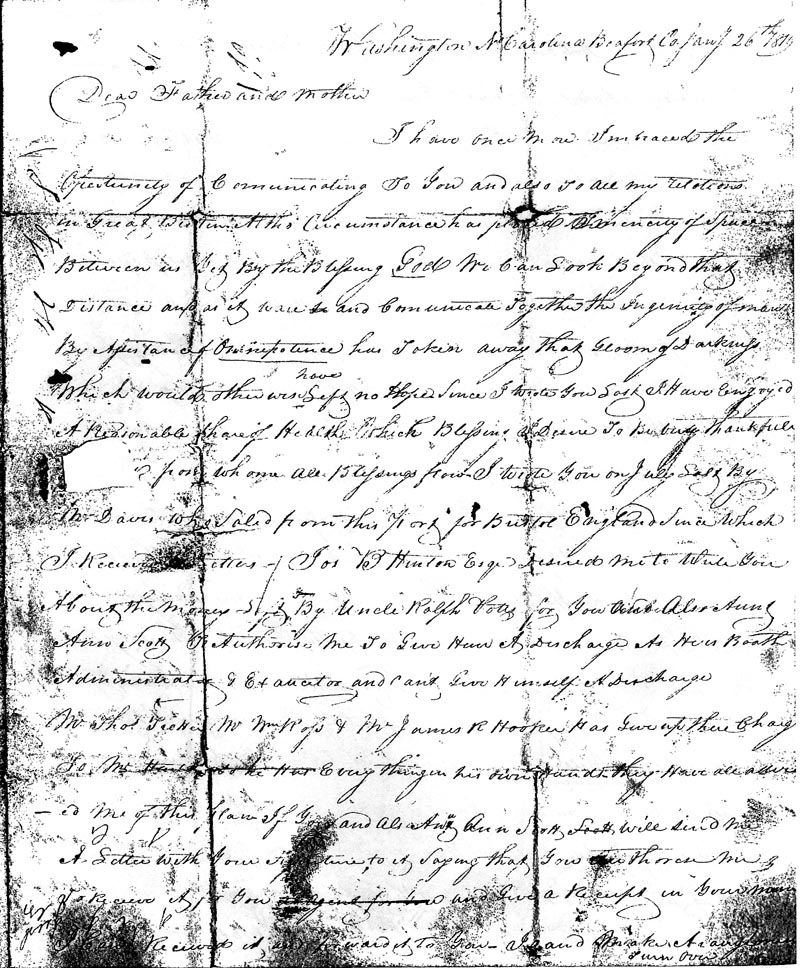 Washington N Carolina Beafort Co Jany 26th 1819
Dear Father and Mother
I have once More Imbraced the
Opertunity of Comunicating To You and also to all my relations
in Great Britain Altho Circumstance has placed Imencity of Space
Between us Yet By the Blessing God We Can Look Beyond that
Distance and as it ware and Comunicate Together the Ingenuity of man
By Assistance of Omnipotence has Taken away that Gloom of Darkness
have
Which would otherwise Left no Hope Since I Wrote You Last I Have Enjoyed
A Reasonable Share of Health Which Blessing I Desire To Be very thankfull
from whome all Blessings flow I wrote You on July Last By
Mr Davis who Saled from this Port for Bristol England Since Which
I Received Letters Jos B Hinton Esqr Desired me to Write You
About the Money Left By Uncle Ralph Potts for You and Also Aunt
Ann Scott To Authorise Me To Give Him A Discharge As He is Booth
Administrator & Exaucator and Cant Give Himself A Discharge
Mr Thos Mr Wm Ross & Mr James R Hooker Has Give up there Charg
To Mr so he Has Every thing in his own Hands they Have all advis
-ed Me of this plan If You and Also Ant Ann Scott Scott will send me
A Letter With Your Signature to it Saying that You Authorese Me
To Receive it for You and Give a Receipt in Your name
I Can Received it and forward it to You and Make
Turn Over